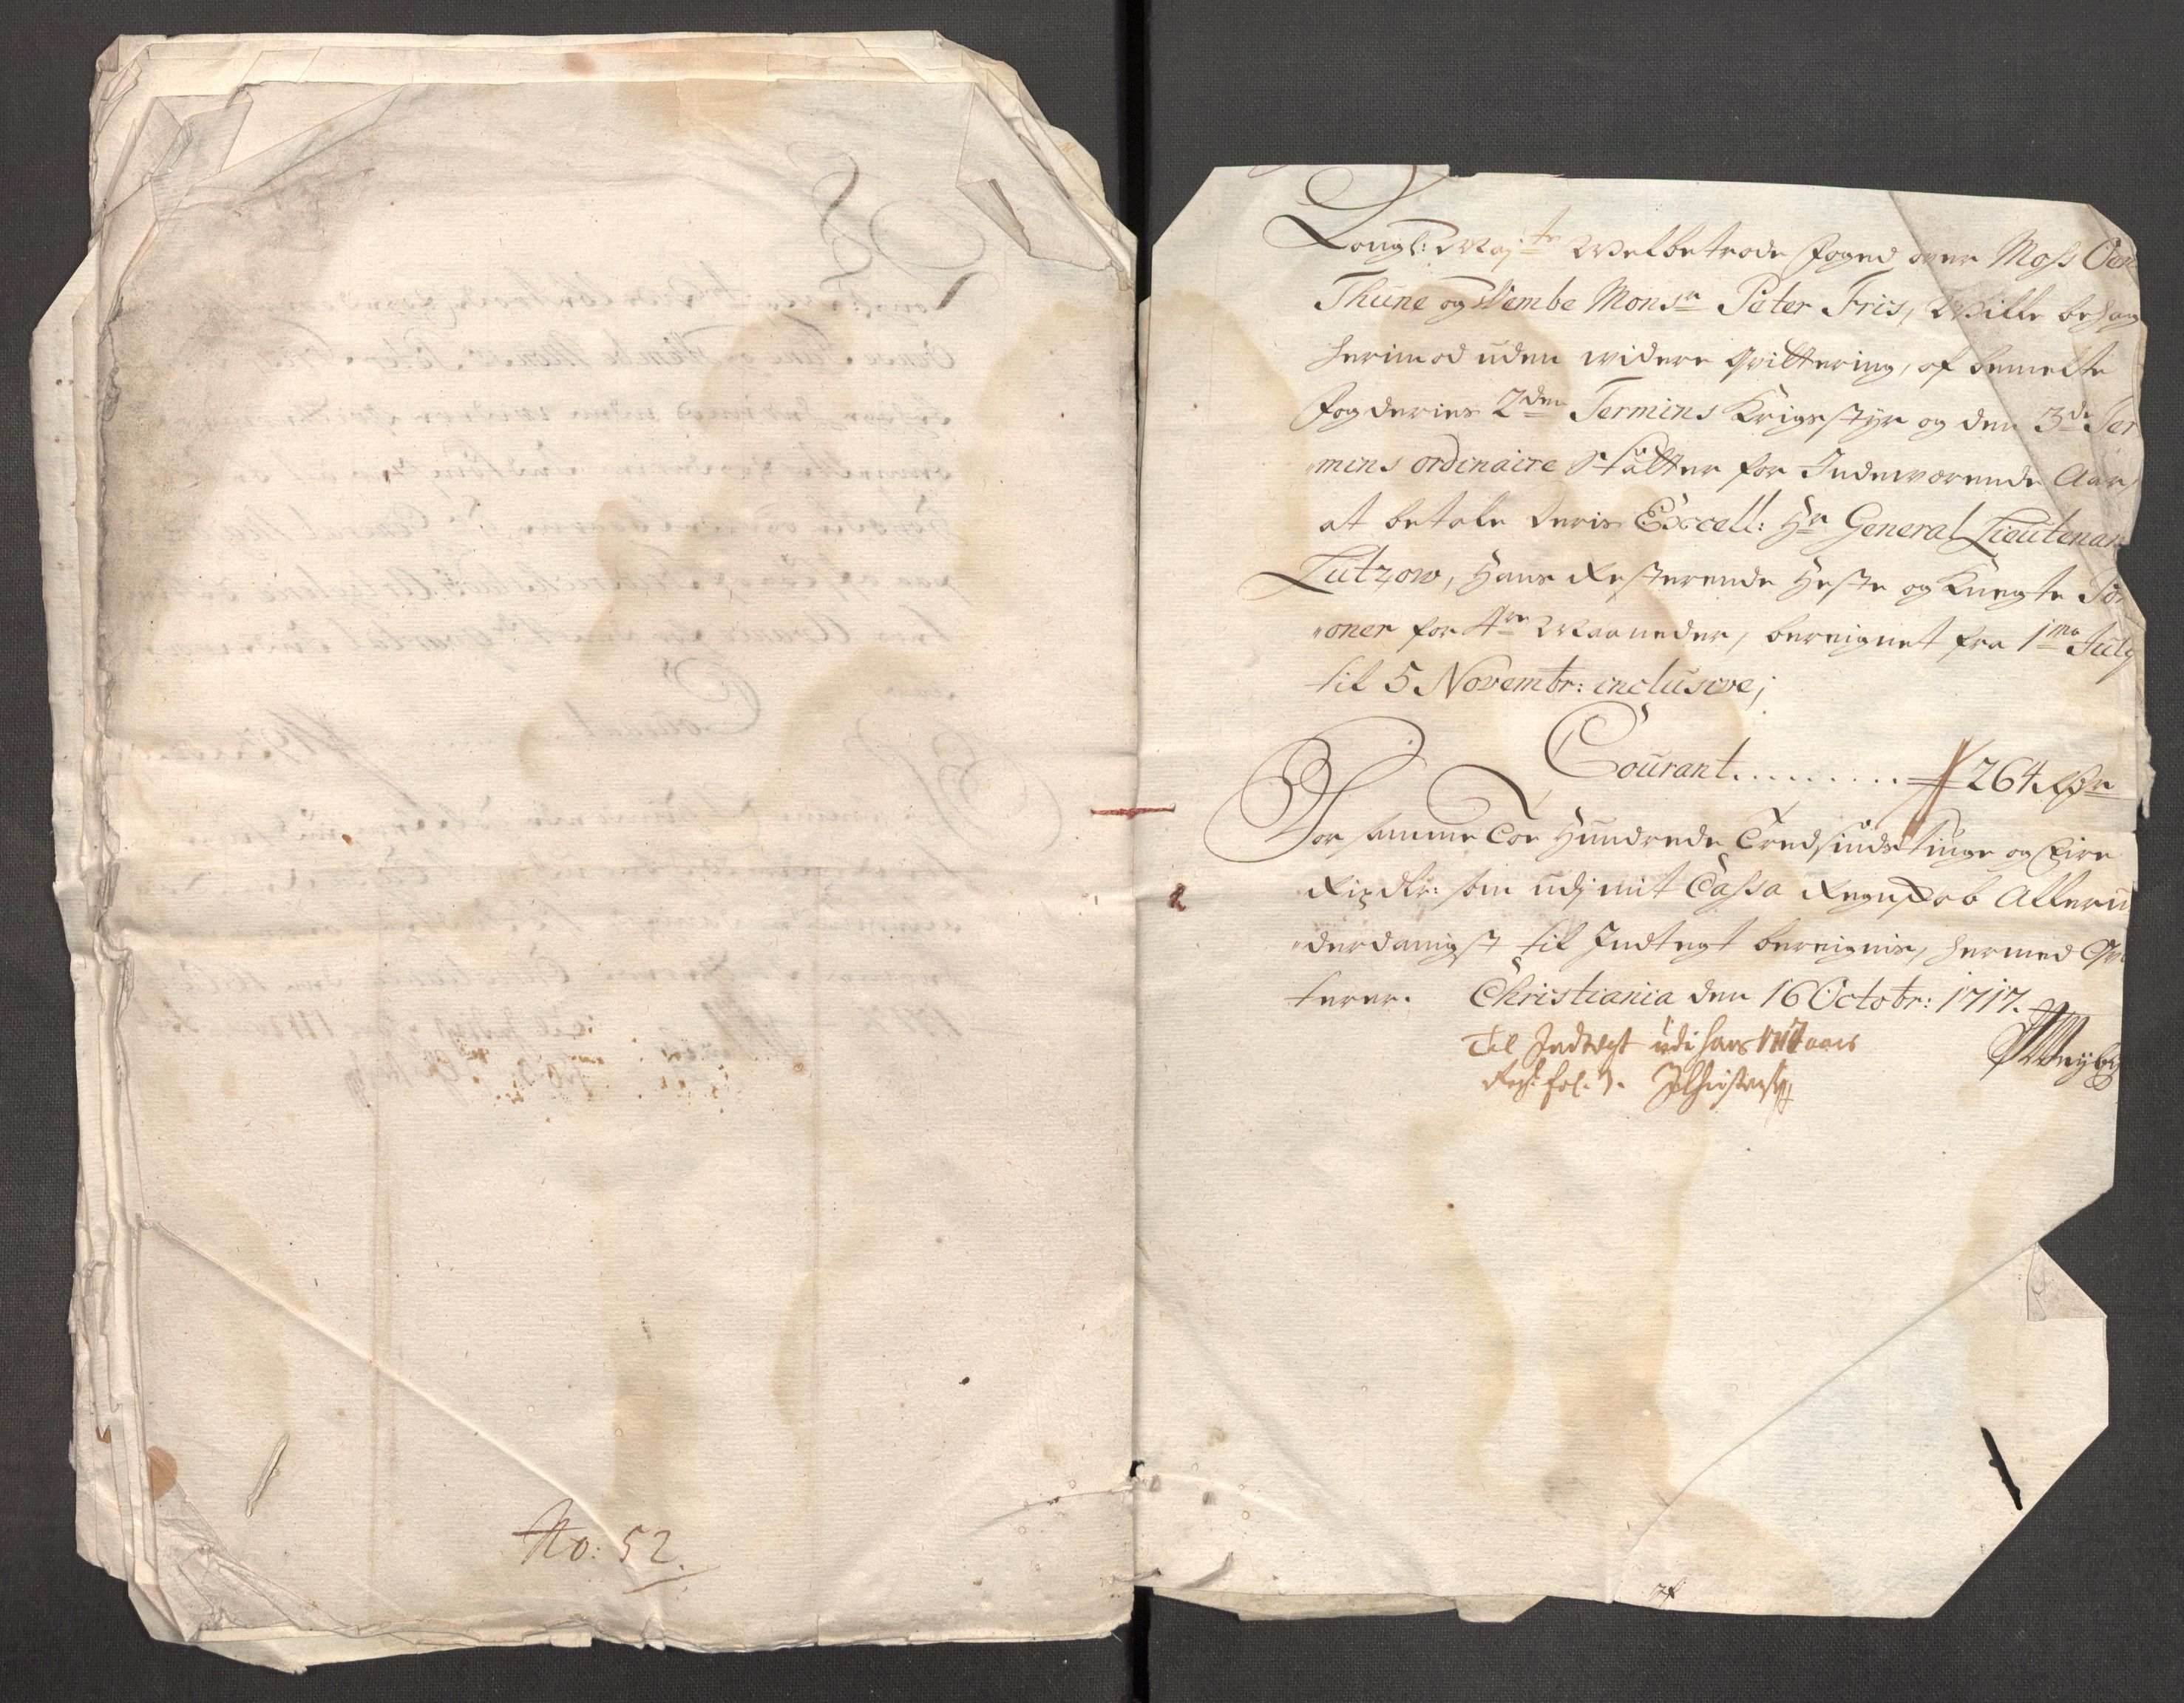 No: 52.
Kongl: Maj:ts Welbetrode foged over Moss
Thune og Wembe Monsr Peter Friis, Wille behag
herimod uden widere Qvittering, af bemelte
fogderies 2den Termins Krigsstyr og den 3de Ter
„mins ordinaire Skatter for Indeværende Aar,
at betale deris Excell: Hr General Lieutenan
Lutzow, Hans Resterende Heste og Knegte
„oner for 4re Maaneder, bereignet fra 1ma July
til 5 Novembr: inclusive;
Courant......... 264 Rdr
For samme Toe Hundrede Tredsindstiuge og Fire
Rixdlr: som udj mit Cassa Regnskab Alleru
„derdanigst til Indtegt bereignis, hermed Qvi
terer. Christiania den 16 Octobr: 1717.
Til Indtegt udi hans 1717 aars
Regsk: fol: 7.